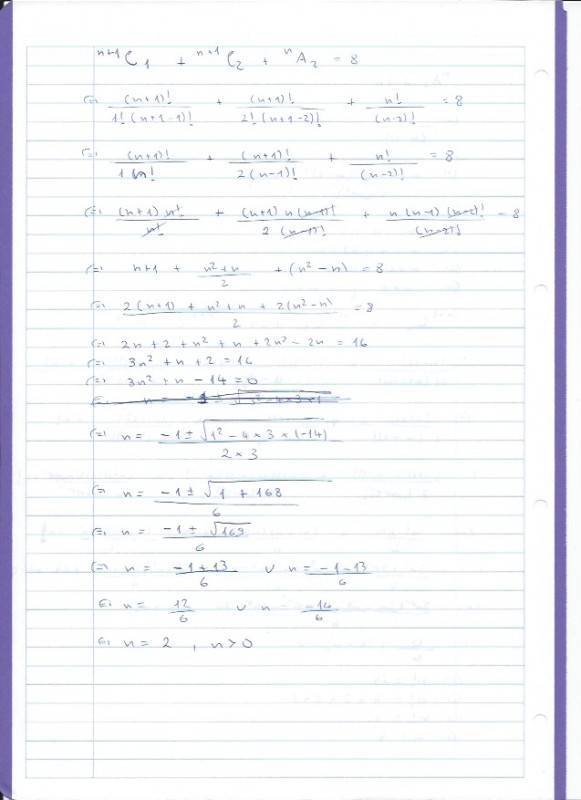 ⁿ⁺¹C₁ + ⁿ⁺¹C₂ + ⁿA₂ = 8
(=) (n+1)! / 1! (n+1-1)! + (n+1)! / 2! (n+1-2)! + n! / (n-2)! = 8
(=) (n+1)! / 1 n! + (n+1)! / 2 (n-1)! + n! / (n-2)! = 8
(=) (n+1) n! / n! + (n+1) n (n-1)! / 2 (n-1)! + n (n-1) (n-2)! / (n-2)! = 8
(=) n+1 + n²+n / 2 + (n² - n) = 8
(=) 2(n+1) + n²+n + 2(n²-n) / 2 = 8
(=) 2n + 2 + n² + n + 2n² - 2n = 16
(=) 3n² + n + 2 = 16
(=) 3n² + n - 14 = 0
(=) n = -1 ± √1² - 4×3×(-14) / 2×3
(=) n = -1 ± √1 + 168 / 6
(=) n = -1 ± √169 / 6
(=) n = -1+13 / 6 ∨ n = -1-13 / 6
(=) n = 12 / 6 ∨ n -14 / 6
(=) n = 2 , n>0